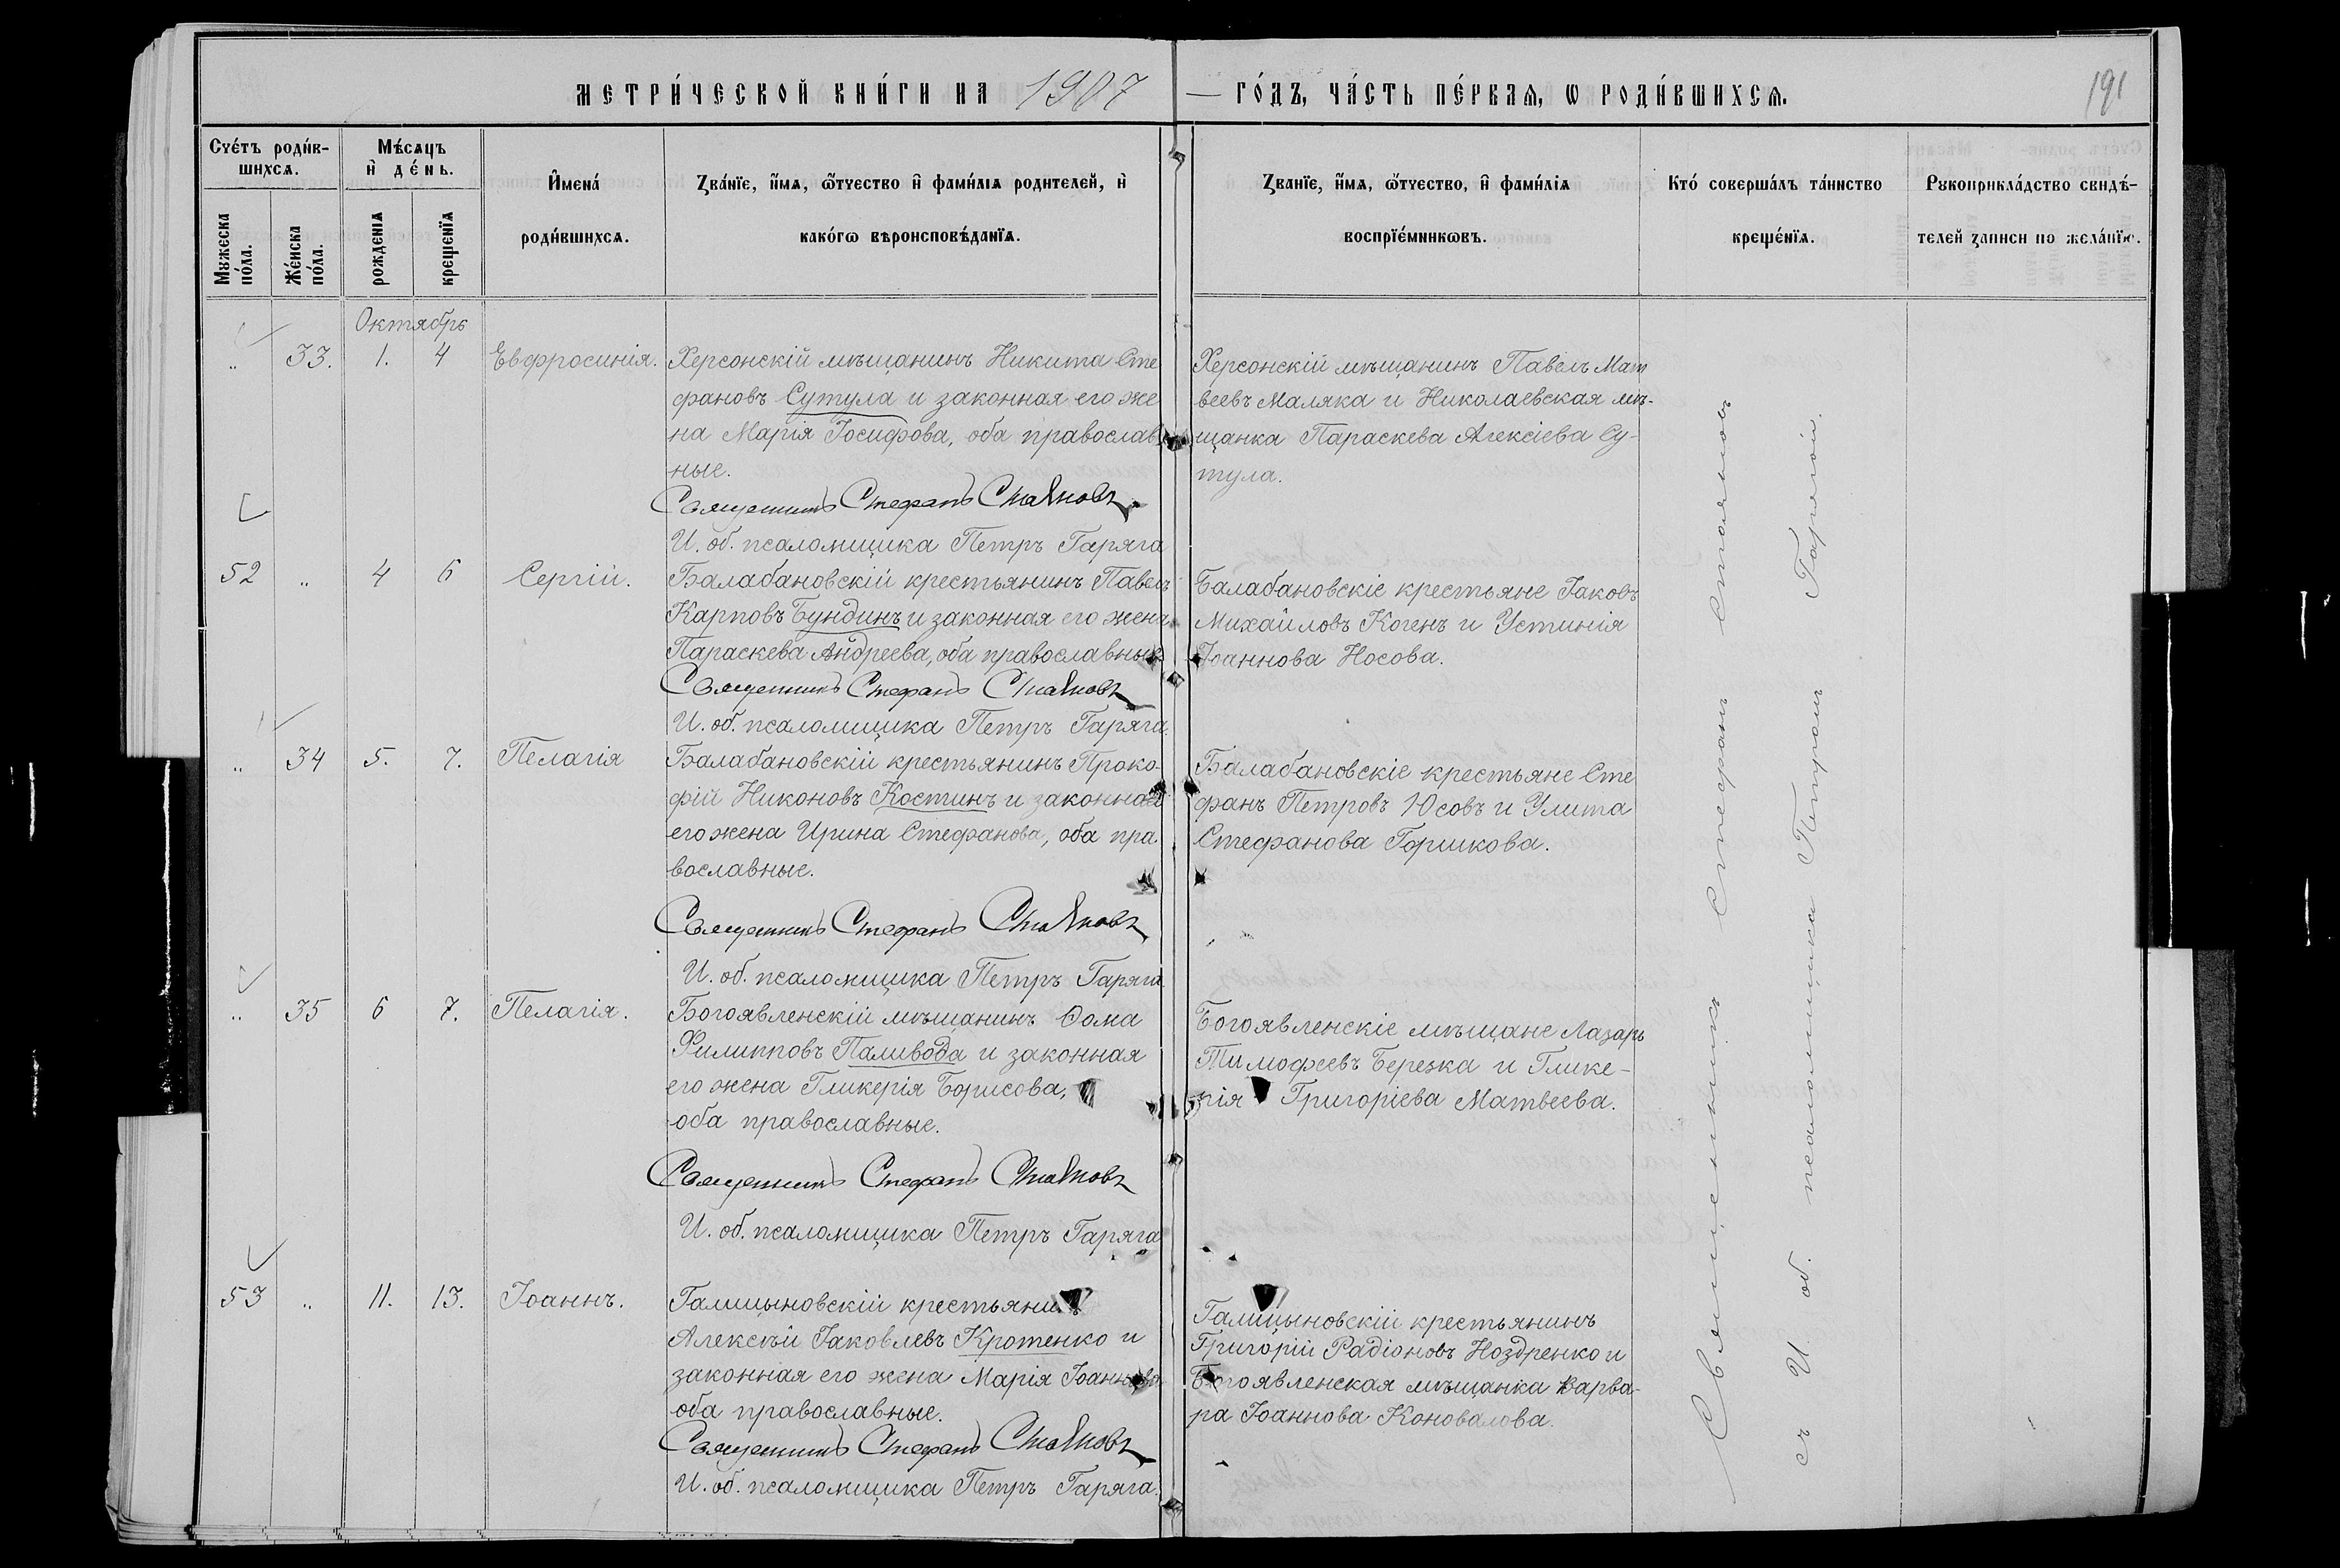 МЕТРИ́ЧЕСКОЙ КНИ́ГИ НА 1907 — ГО́ДЪ, ЧА́СТЬ ПЕ́РВАѦ, Ѡ РОДИ́ВШИХСѦ.
191
Счéтъ роди́в-
шихсѧ.
Мꙋжеска
пóла.
Же́нска
пóла.
Мѣ́сѧцъ
и҆ де́нь.
рожденїѧ
крещенїѧ
И҆мена́
роди́вшихсѧ.
Зва́нїе, и҆́мѧ, ѻ҆́тчество и҆ фами́лїѧ родителей, и҆
како́гѡ вѣроисповѣ́данїѧ.
Зва́нїе, и҆́мѧ, ѻ҆́тчество, и҆ фами́лїѧ
воспрїе́мникѡвъ.
Кто́ соверша́лъ та́инство
креще́нїѧ.
Рꙋкоприкла́дство свидѣ́-
телей записи по жела́нїю.
Октябрь
„ 33. 1. 4 Евфросинія.
Херсонскій мѣщанинъ Никита Сте
фановъ Сутула и законная его же
на Марія Іосифова, оба православ
ные.
Священникъ Стефанъ Стояновъ
И. об. псаломщика Петръ Гаряга
Херсонскій мѣщанинъ Павелъ Мат
веевъ Маляка и Николаевская мѣ-
щанка Параскева Алексіева Су-
тула.
52 „ 4 6 Сергій.
Балабановскій крестьянинъ Павелъ
Карповъ Бундинъ и законная его жена
Параскева Андреева, оба православные
Священникъ Стефанъ Стояновъ
И. об. псаломщика Петръ Гаряга.
Балабановскіе крестьяне Іаковъ
Михайловъ Когенъ и Устинія
Іоаннова Носова.
„ 34 5. 7. Пелагія
Балабановскій крестьянинъ Проко-
фій Никоновъ Костинъ и законная
его жена Ирина Стефанова, оба пра
вославные.
Священникъ Стефанъ Стояновъ
И. об. псаломщика Петръ Гаряга
Балабановскіе крестьяне Сте
фанъ Петровъ Юсовъ и Улита
Стефанова Горшкова.
„ 35 6 7. Пелагія.
Богоявленскій мѣщанинъ Ѳома
Филипповъ Паливода и законная
его жена Гликерія Борисова,
оба православные.
Священникъ Стефанъ Стояновъ
И. об. псаломщика Петръ Гаряга
Богоявленскіе мѣщане Лазарь
Тимофеевъ Березка и Глике-
рія Григоріева Матвеева.
53 „ 11. 13. Іоаннъ.
Галицыновскій крестьянинъ
Алексѣй Іаковлевъ Кротенко и
законная его жена Марія Іоаннова
оба православные.
Священникъ Стефанъ Стояновъ
И. об. псаломщика Петръ Гаряга.
Галицыновскій крестьянинъ
Григорій Радіоновъ Ноздренко и
Богоявленская мѣщанка Варва-
ра Іоаннова Коновалова.
Священникъ Стефанъ Стояновъ
съ И. об. псаломщика Петромъ Гарягой.